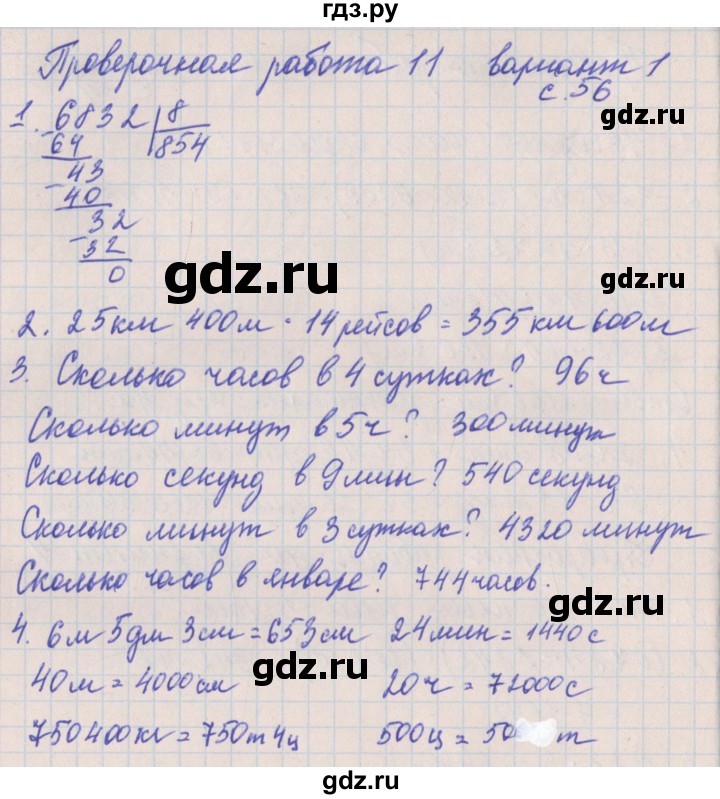 гдз.ру
Проверочная работа 11 вариант 1
с. 56
gdz.ru
1. 6832 8
64 854
43
40
32
32
0
gdz.ru
gdz.ru
2. 25км 400м · 14рейсов = 355км 600м
3. Сколько часов в 4 сутках? 96ч
Сколько минут в 5ч? 300минут
Сколько секунд в 9мин? 540секунд
Сколько минут в 3 сутках? 4320минут
Сколько часов в январе? 744часов.
gdz.ru
gdz.ru
4. 6м 5дм 3см = 653см 24мин = 1440с
40м = 4000см 20ч = 72000с
750400кг = 750т 4ц 500ц = 50 т
gdz.ru